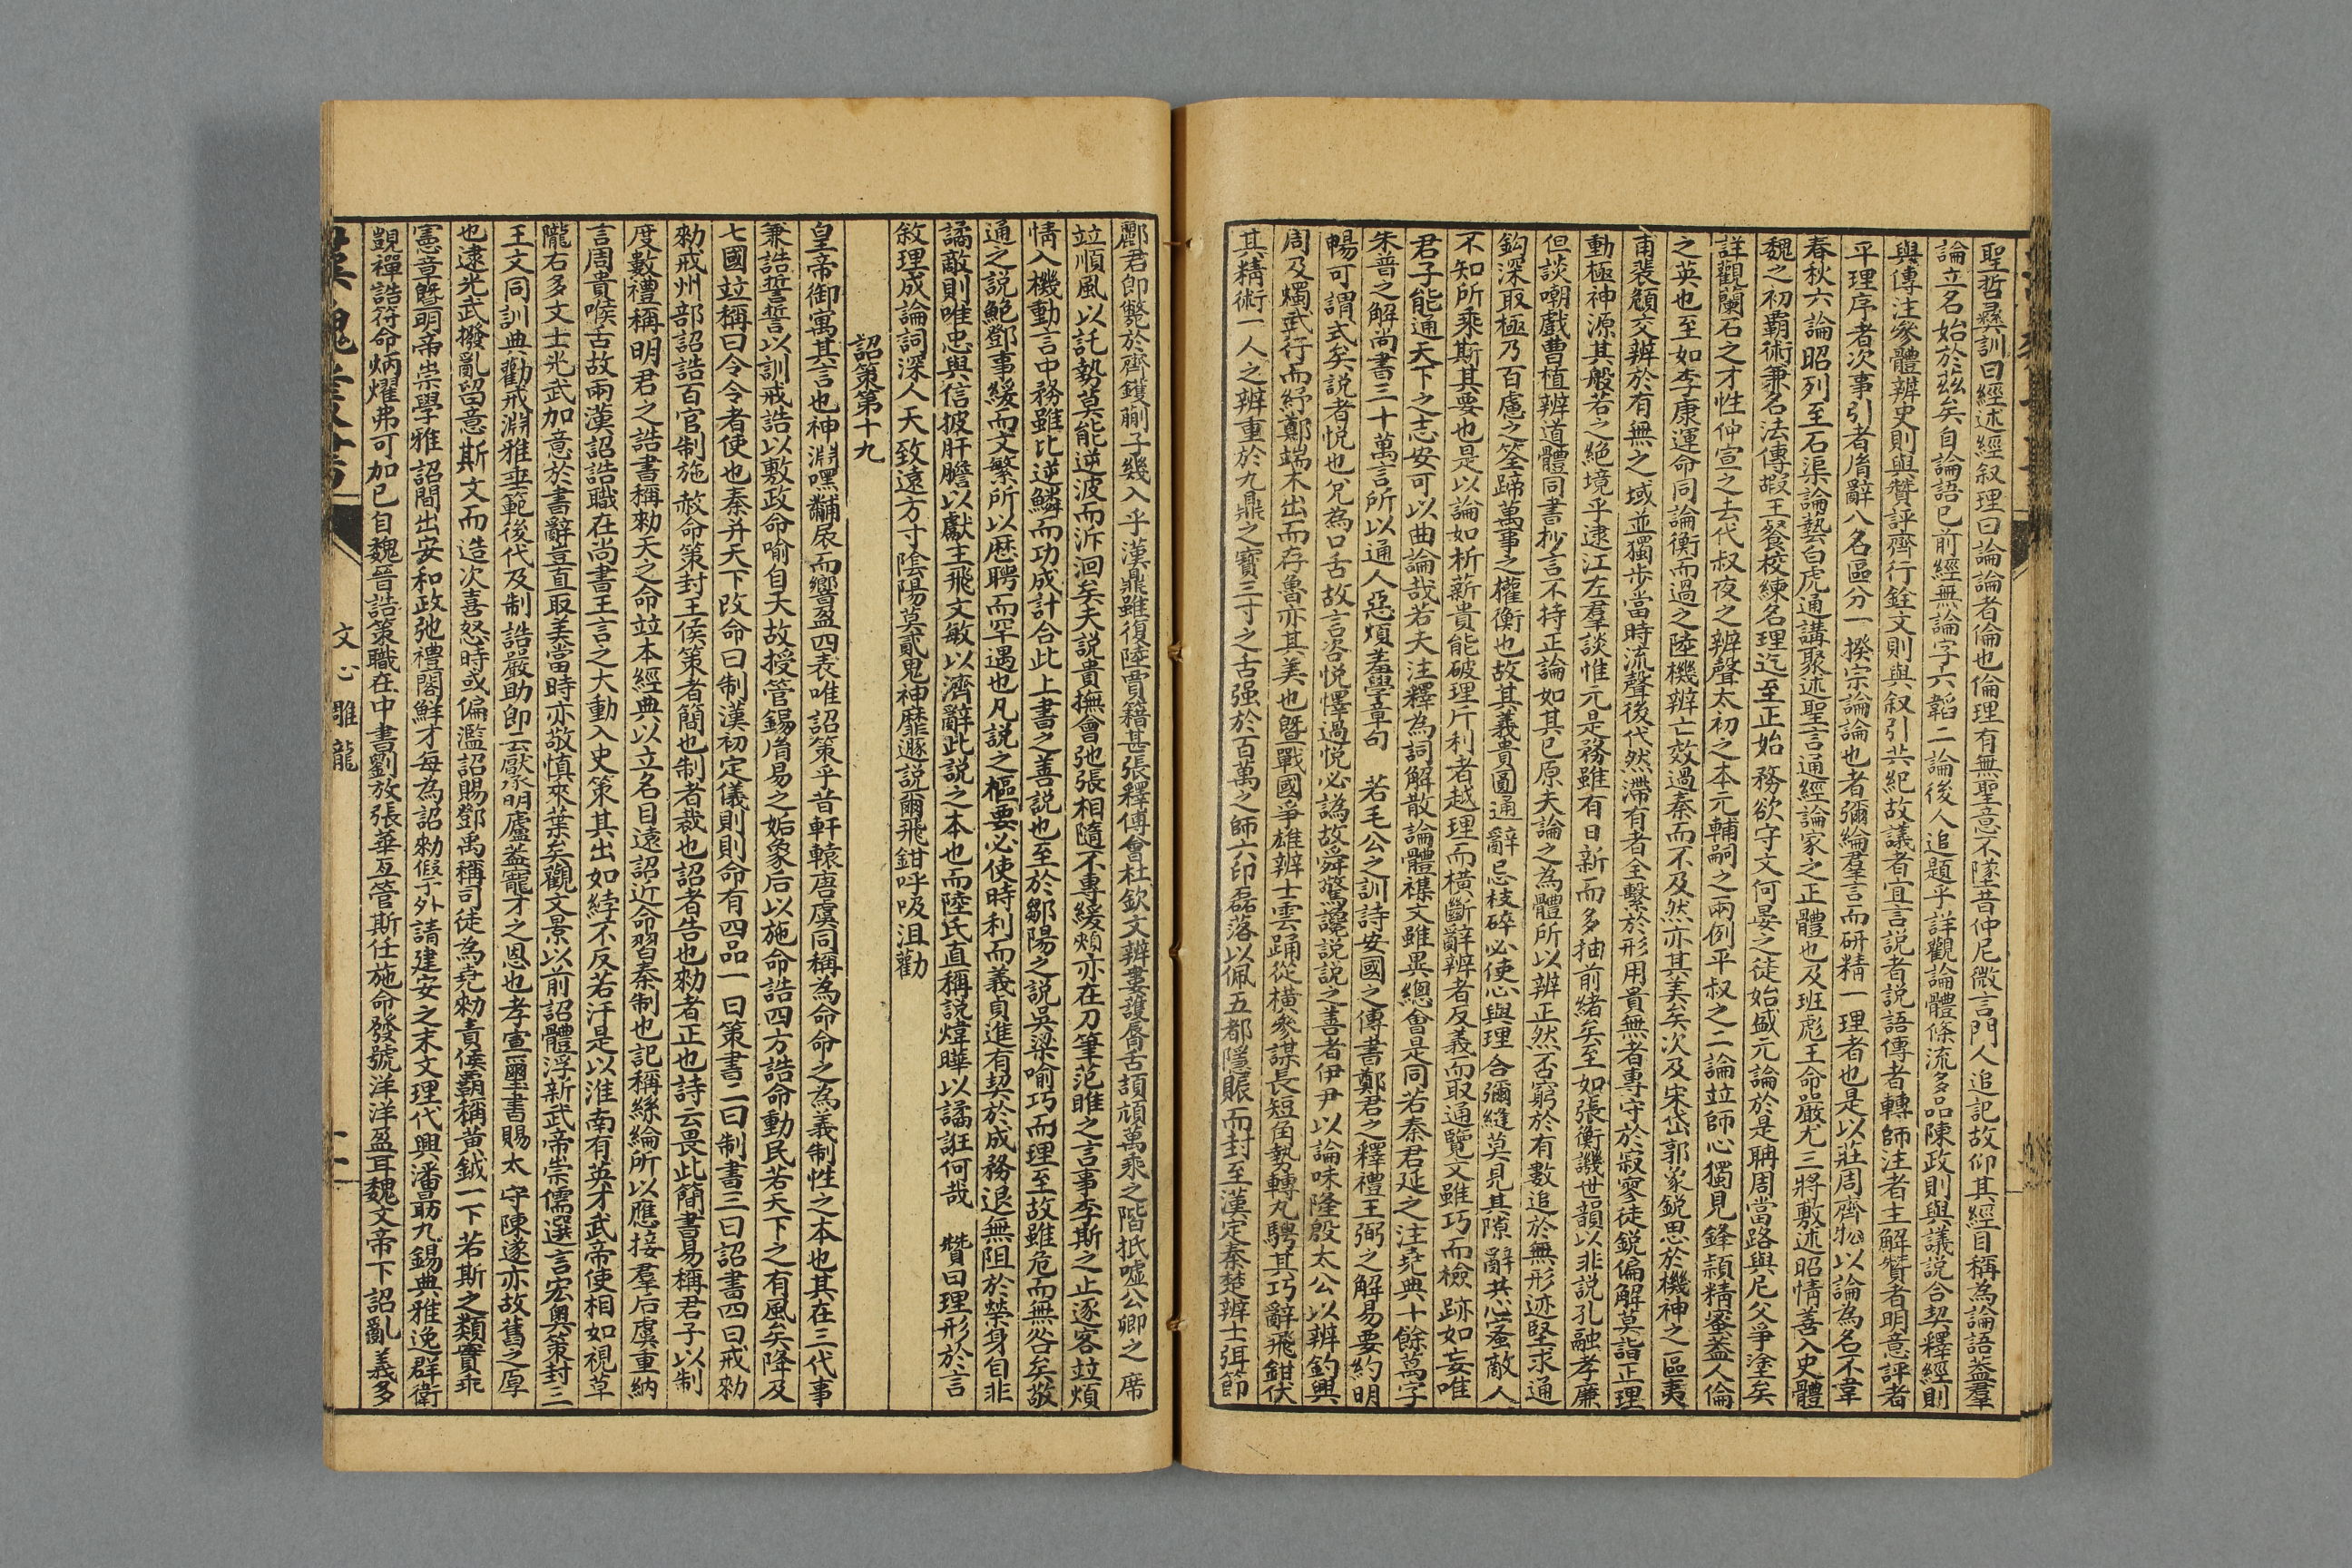 聖哲彞訓曰經述經叙理曰論論者倫也倫理有無聖意不墜昔仲尼微言門人追記故仰其經目稱為論語葢羣
論立名始於茲矣自論語已前經無論字六韜二論後人追題乎詳觀論體條流多品陳政則與議說合契釋經則
與傳注參體辨史則與贊評齊行銓文則與叙引共紀故議者宜言說者說語傳者轉師注者主解贊者明意評者
平理序者次事引者胤辭八名區分一揆宗論論也者彌綸羣言而研精一理者也是以莊周齊物以論為名不韋
春秋六論昭列至石渠論藝白虎通講聚述聖言通經論家之正體也及班彪王命嚴尤三將敷述昭情善入史體
魏之初霸術兼名法傅嘏王粲校練名理迄至正始務欲守文何晏之徒始盛元論於是聃周當路與尼父爭塗矣
詳觀蘭石之才性仲宣之去代叔夜之辨聲太初之本元輔嗣之兩例平叔之二論竝師心獨見鋒頴精密葢人倫
之英也至如李康運命同論衡而過之陸機辨亡效過秦而不及然亦其美矣次及宋岱郭象銳思於機神之區夷
甫裴頠交辨於有無之域並獨步當時流聲後代然滯有者全繫於形用貴無者專守於寂寥徒銳偏解莫詣正理
動極神源其般若之絕境乎逮江左羣談惟元是務雖有日新而多抽前緒矣至如張衡譏世韻以非說孔融孝廉
但談嘲戲曹植辨道體同書杪言不持正論如其已原夫論之為體所以辨正然否窮於有數追於無形迹堅求通
鈎深取極乃百慮之筌蹄萬事之權衡也故其義貴圓通辭忌枝碎必使心與理合彌縫莫見其隙辭共心蜜敵人
不知所乘斯其要也是以論如析薪貴能破理斤利者越理而橫斷辭辨者反義而取通覽文雖巧而檢跡如妄唯
君子能通天下之志安可以曲論哉若夫注釋為詞解散論體襍文雖異總會是同若秦君延之注堯典十餘萬字
朱普之解尚書三十萬言所以通人惡煩羞學章句　若毛公之訓詩安國之傳書鄭君之釋禮王弼之解易要約明
暢可謂式矣說者悅也兌為口舌故言咨悅懌過悅必為故舜驚讒說說之善者伊尹以論味隆殷太公以辨釣興
周及燭武行而紓鄭端木出而存魯亦其美也暨戰國爭雄辨士雲踊從橫參謀長短角勢轉丸騁其巧辭飛鉗伏
其精術一人之辨重於九鼎之寶三寸之舌强於百萬之師六印磊落以佩五都隱賑而封至漢定秦楚辨士弭節
酈君卽斃於齊鑊蒯子幾入乎漢鼎雖復陸賈籍甚張釋傅會杜欽文辨婁護脣舌頡頏萬乘之階抵噓公卿之席
竝順風以託勢莫能逆波而泝洄矣夫說貴撫會弛張相隨不專緩頰亦在刀筆范雎之言事李斯之止逐客竝煩
情入機動言中務雖批逆鱗而功成計合此上書之善說也至於鄒陽之說吳梁喻巧而理至故雖危而無咎矣敬
通之說鮑鄧事緩而文繁所以歷騁而罕遇也凡說之樞要必使時利而義貞進有契於成務退無阻於榮身自非
譎敵則唯忠與信披肝膽以獻主飛文敏以濟辭此說之本也而陸氏直稱說煒曄以譎誑何哉　贊曰理形於言
敘理成論詞深人天致遠方寸陰陽莫貳鬼神靡遯說爾飛鉗呼吸沮勸
詔策第十九
皇帝御寓其言也神淵嘿黼扆而響盈四表唯詔策乎昔軒轅唐虞同稱為命命之為義制性之本也其在三代事
兼誥誓誓以訓戒誥以敷政命喻自天故授管錫胤易之姤象后以施命誥四方誥命動民若天下之有風矣降及
七國竝稱曰令令者使也秦并天下改命曰制漢初定儀則則命有四品一曰策書二曰制書三曰詔書四曰戒勑
勑戒州部詔誥百官制施赦命策封王侯策者簡也制者裁也詔者告也勑者正也詩云畏此簡書易稱君子以制
度數禮稱明君之誥書稱勑天之命竝本經典以立名目遠詔近命習秦制也記稱絲綸所以應接羣后虞重納
言周貴喉舌故兩漢詔誥職在尚書王言之大動入史策其出如綍不反若汗是以淮南有英才武帝使相如視草
隴右多文士光武加意於書辭豈直取美當時亦敬慎來葉矣觀文景以前詔體浮新武帝崇儒選言宏奧策封三
王文同訓典勸戒淵雅垂範後代及制誥嚴助卽云厭承明廬葢寵才之恩也孝宣璽書賜太守陳遂亦故舊之厚
也逮光武撥亂留意斯文而造次喜怒時或偏濫詔賜鄧禹稱司徒為堯勑責侯霸稱黃鉞一下若斯之類實乖
憲章暨明帝崇學雅詔間出安和政弛禮閣鮮才每為詔勑假手外請建安之末文理代興潘勗九錫典雅逸群衛
覬禪誥符命炳燿弗可加已自魏晉誥策職在中書劉放張華互管斯任施命發號洋洋盈耳魏文帝下詔亂義多
漢魏叢書
文心雕龍